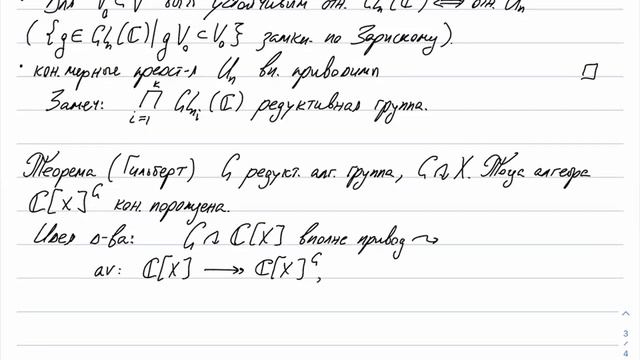 V₀ ⊆ V был устойчивым отн. GLₙ(ℂ) ⟺ отн. Uₙ
({g ∈ GLₙ(ℂ) | gV₀ ⊂ V₀} замкн. по Зарискому).
• кон. мерные предст-я Uₙ вп. приводимы □
Замеч: ∏ᵢ₌₁ᵏ GLₙᵢ(ℂ) редуктивная группа.
Теорема (Гильберт) G редукт. алг. группа, G ↷ X. Тогда алгебра
ℂ[X]ᴳ кон. порождена.
Идея д-ва: G ↷ ℂ[X] вполне привод ⇝
av: ℂ[X] ↠ ℂ[X]ᴳ,
3
/
4